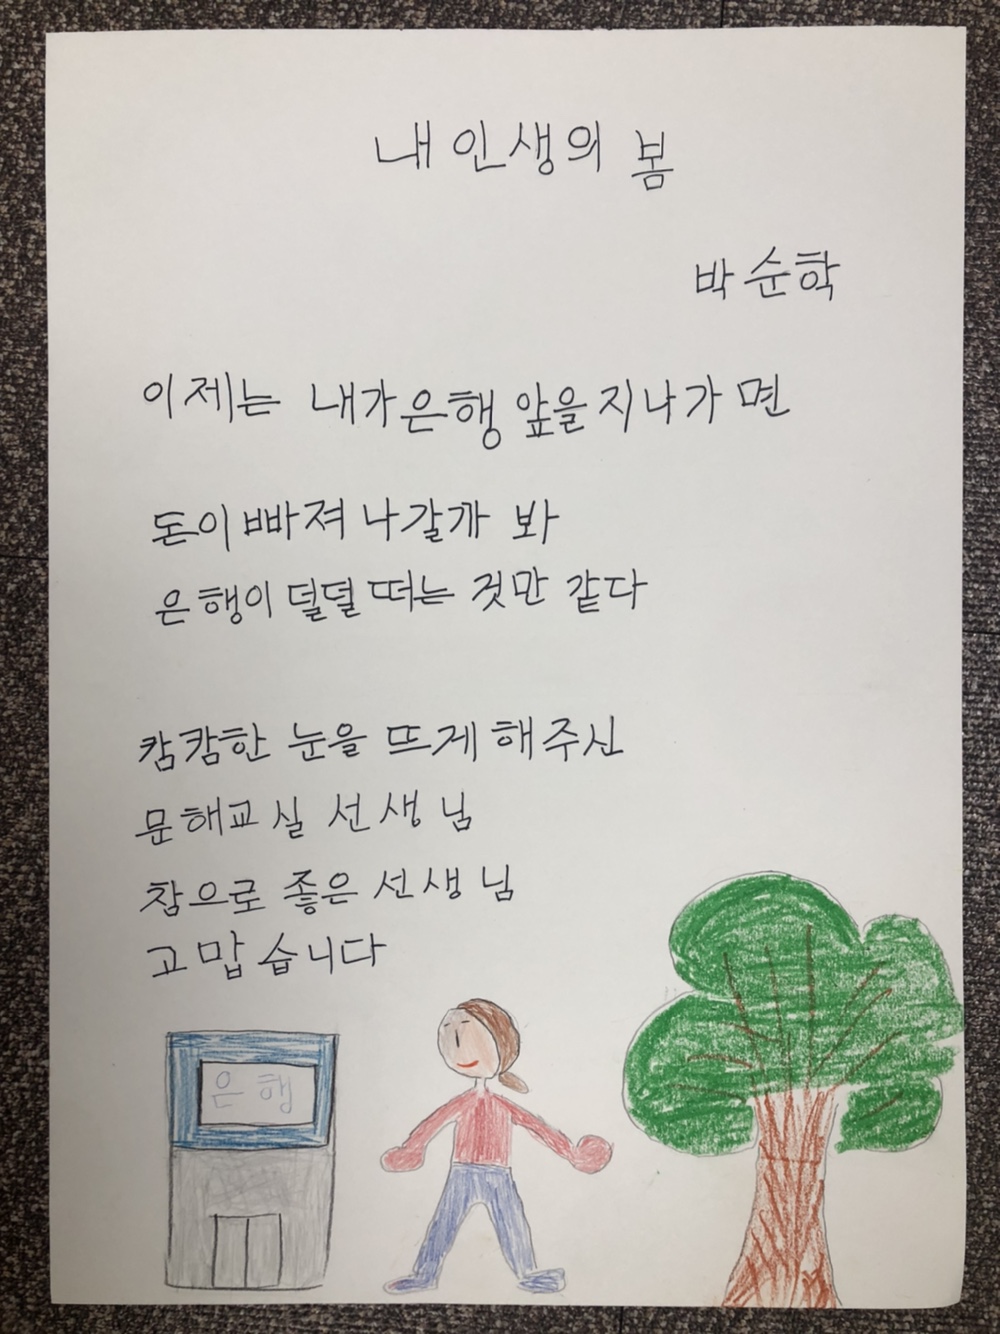 내 인생의 봄
박순학
이제는 내가 은행 앞을 지나가면
돈이 빠져 나갈까 봐
은행이 덜덜 떠는 것만 같다
캄캄한 눈을 뜨게 해주신
문해교실 선생님
참으로 좋은 선생님
고맙습니다
은행